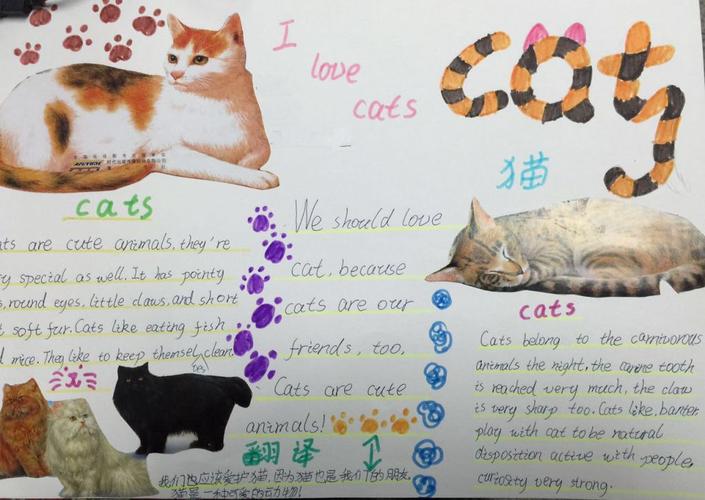 I
love
cats
cat
猫
cats
ats are cute animals, they're
ry special as well. It has pointy
s, round eyes, little claws, and short
t soft fur. Cats like eating fish
d mice. They like to keep themsel clean.
We should love
cat, because
cats are our
friends, too.
Cats are cute
animals!
翻译
我们也应该爱护猫,因为猫也是我们的朋友,
猫是一种可爱的动物!
cats
Cats belong to the carnivorous
animals the night, the canine tooth
is reached very much, the claw
is very sharp too. Cats like, banter,
play with cat to be natural
disposition active with people,
curiosity very strong.